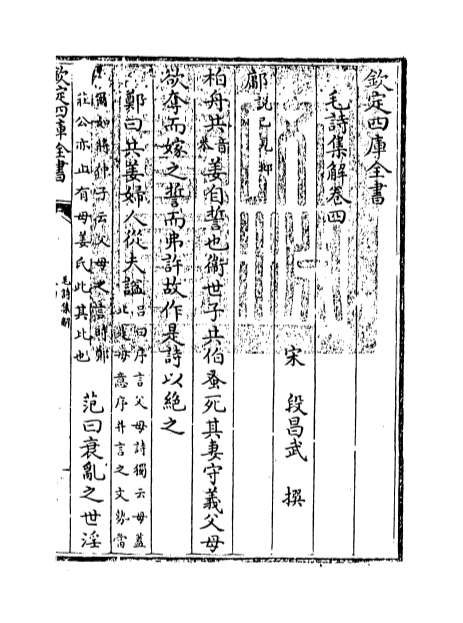 欽定四庫全書
毛詩集解卷四
宋 段昌武 撰
鄘說已見邶
柏舟共音恭姜自誓也衛世子共伯蚤死其妻守義父母
欲奪而嫁之誓而弗許故作是詩以絶之
鄭曰共姜婦人從夫諡呂曰序言父母詩獨云母蓋
此母意序并言之文勢當
爾如將仲子云父母之言時鄭
莊公亦止有母姜氏此其比也 范曰衰亂之世淫
欽定四庫全書
毛詩集解